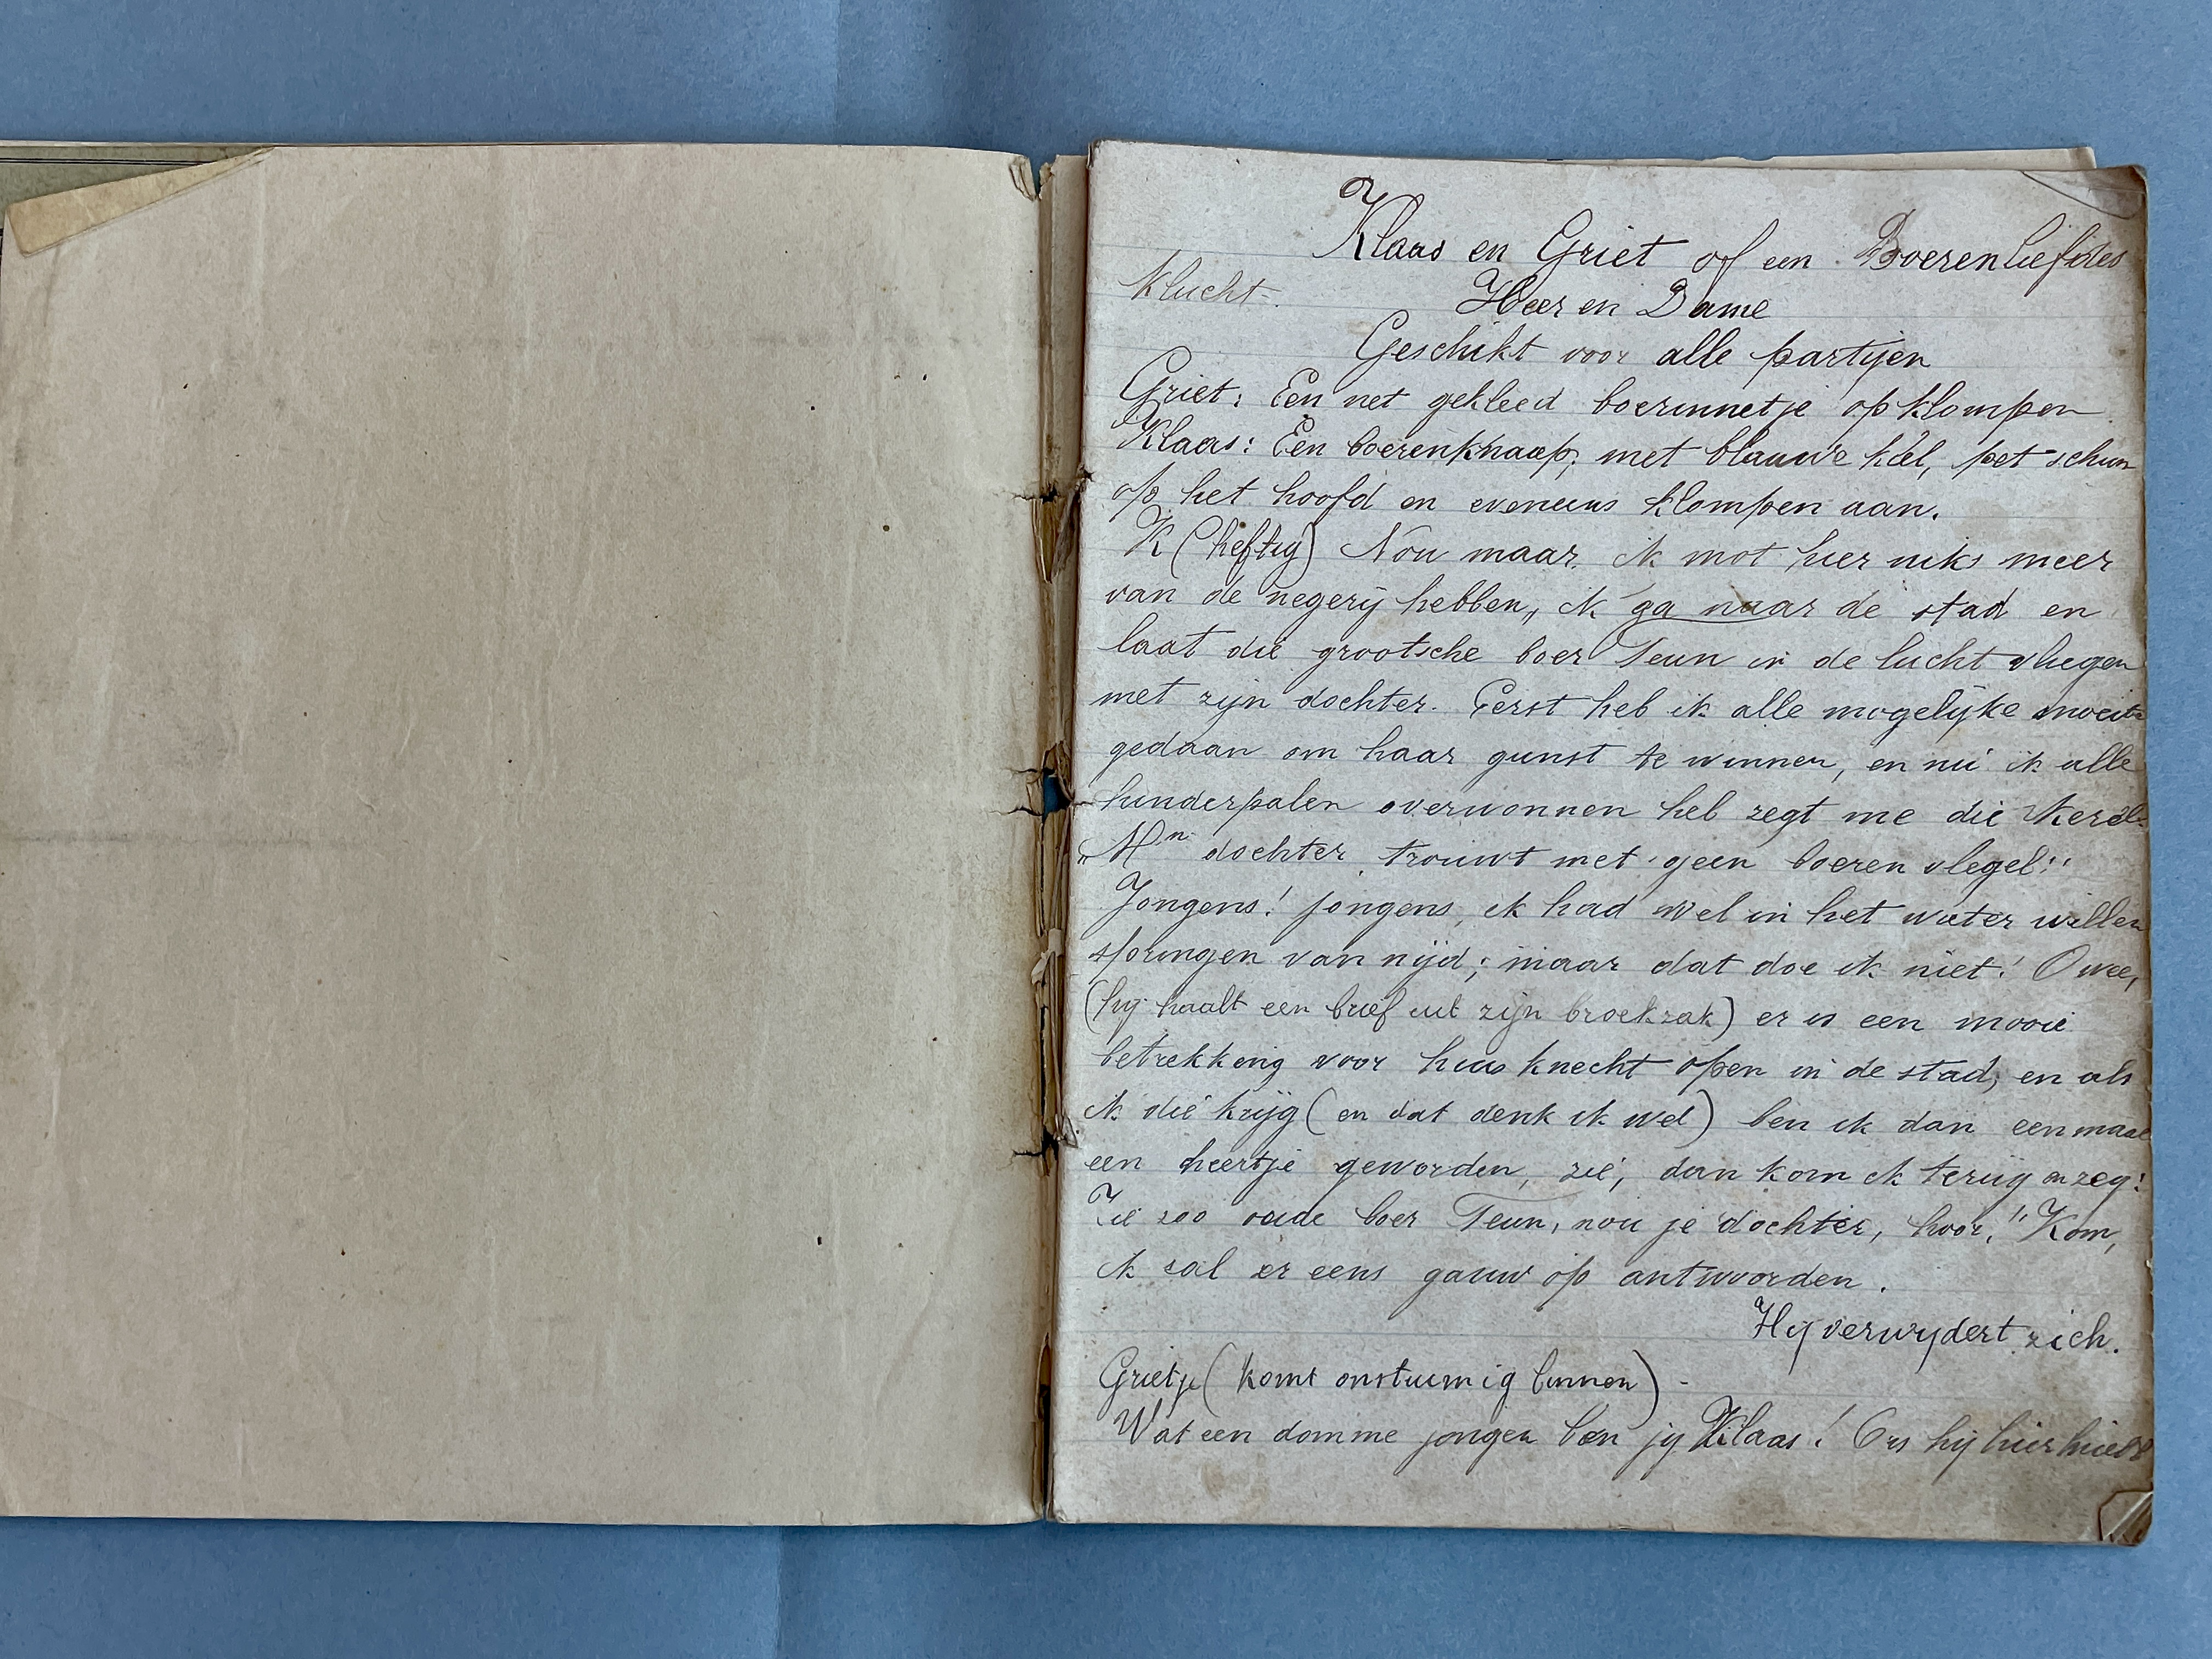 Klaas en Griet of een Boerenliefdes
klucht.
Heer en Dame
Geschikt voor alle partijen
Griet: Een net gekleed boerinnetje op klompen
Klaas: Een boerenknaap, met blauwe kiel, pet schuin
op het hoofd en eveneens klompen aan.
K (heftig) Nou maar, ik mot hier niks meer
van de negerij hebben, ik ga naar de stad en
laat die grootsche boer Teun in de lucht vliegen
met zijn dochter. Eerst heb ik alle mogelijke moeite
gedaan om haar gunst te winnen, en nu ik alle
hinderpalen overwonnen heb zegt me die kerel:
„Mn dochter trouwt met geen boeren vlegel!"
Jongens! jongens, ik had wel in het water willen
springen van nijd; maar dat doe ik niet! O wee,
(hij haalt een brief uit zijn broekzak) er is een mooie
betrekking voor huisknecht open in de stad, en als
ik die krijg (en dat denk ik wel) ben ik dan eenmaal
een heertje geworden, zie, dan kom ik terug en zeg:
Zie zoo oude boer Teun, nou je dochter, hoor!" Kom,
ik zal er eens gauw op antwoorden.
Hij verwijdert zich.
Grietje (komt onstuimig binnen) -
Wat een domme jongen ben jij Klaas! hij hier